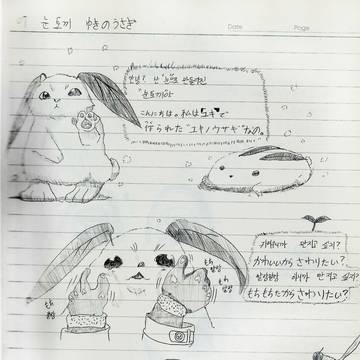 눈토끼 ゆきのうさぎ
Date
Page
안녕? 난 "눈"으로 만들어진
"눈토끼"야
こんにちは。私は"ユキ"で
作られた"ユキノウサギ"なの。
귀여우니까 만지고 싶지?
かわいいからさわりたい?
말랑말랑 하니까 만지고 싶지?
もちもちだからさわりたい?
もち
말랑
もち
말랑